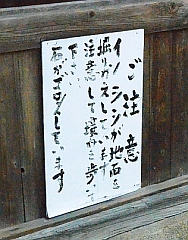 ご注意
イノシシが地面を
掘りかえしています
注意して境内を歩いて
下さい
石がゴロゴロしています